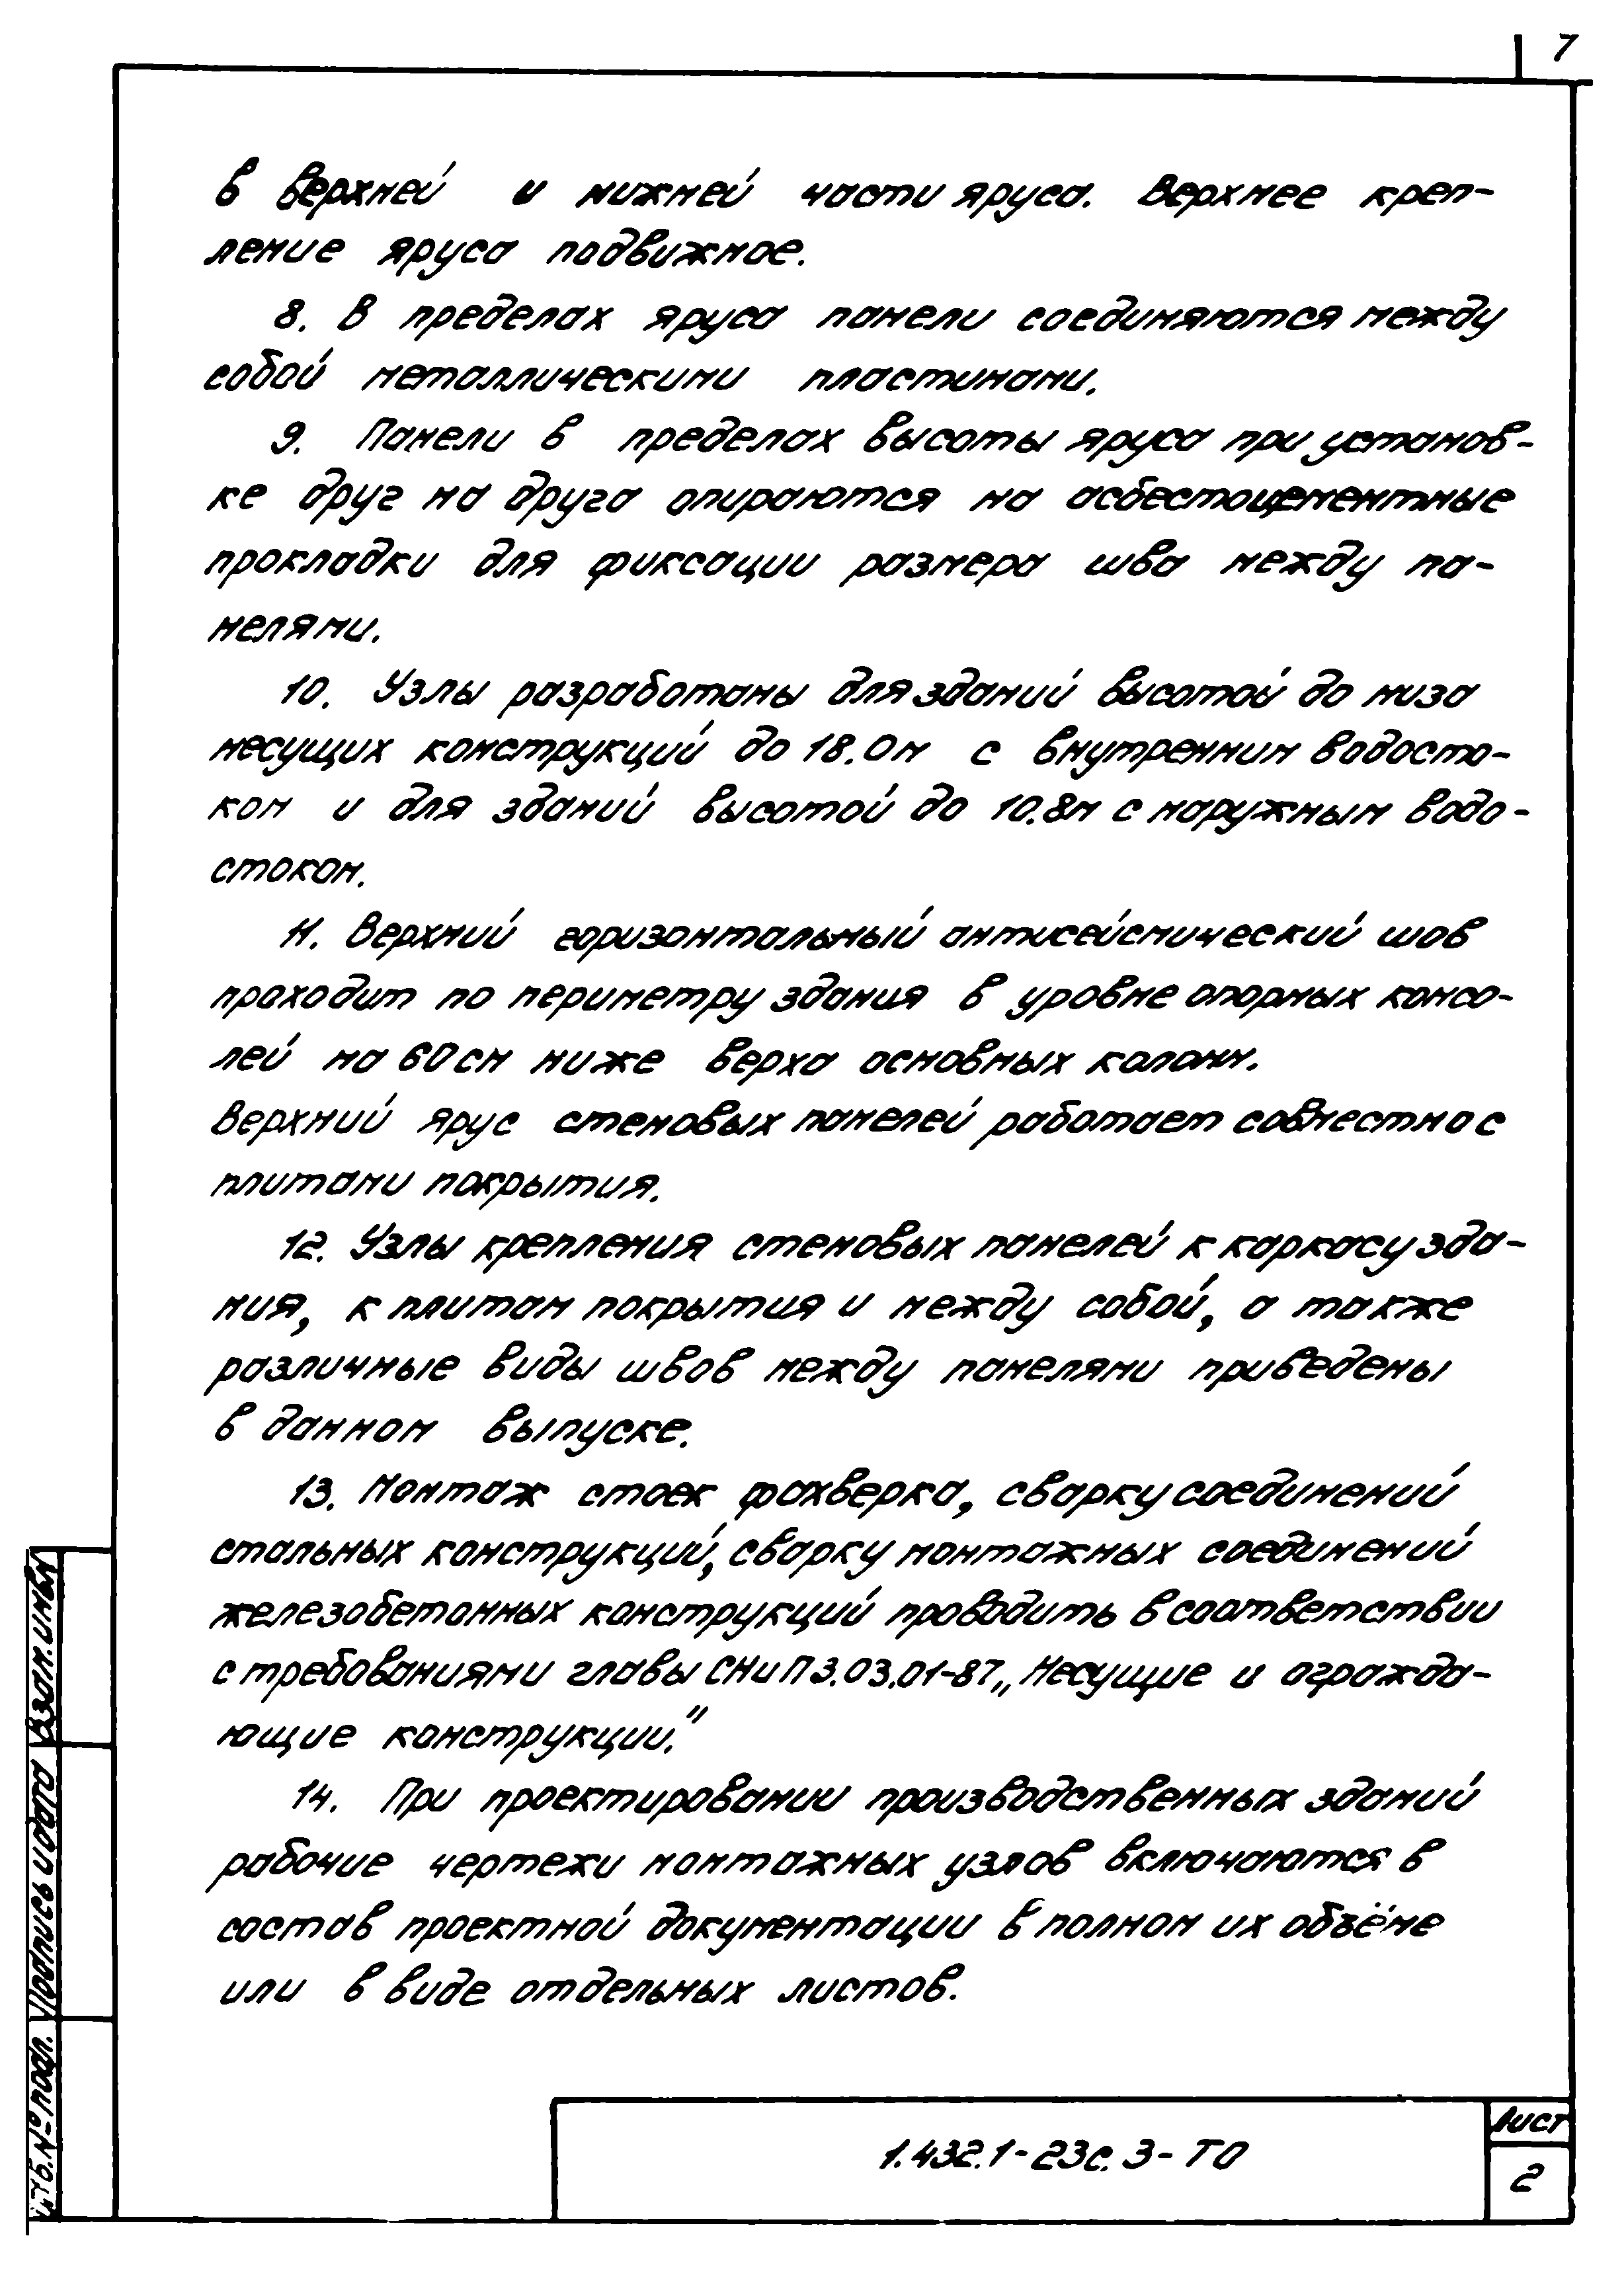 7
в верхней и нижней части яруса. Верхнее креп-
ление яруса подвижное.
8. В пределах яруса панели соединяются между
собой металлическими пластинами.
9. Панели в пределах высоты яруса при установ-
ке друг на друга опираются на асбестоцементные
прокладки для фиксации размера шва между па-
нелями.
10. Узлы разработаны для зданий высотой до низа
несущих конструкций до 18.0м с внутренним водосто-
ком и для зданий высотой до 10.8м с наружным водо-
стоком.
11. Верхний горизонтальный антисейсмический шов
проходит по периметру здания в уровне опорных консо-
лей на 60см ниже верха основных колонн.
Верхний ярус стеновых панелей работает совместно с
плитами покрытия.
12. Узлы крепления стеновых панелей к каркасу зда-
ния, к плитам покрытия и между собой, а также
различные виды швов между панелями приведены
в данном выпуске.
13. Монтаж стоек фахверка, сварку соединений
стальных конструкций, сварку монтажных соединений
железобетонных конструкций проводить в соответствии
с требованиями главы СНиП 3.03.01-87 „Несущие и огражда-
ющие конструкции."
14. При проектировании производственных зданий
рабочие чертежи монтажных узлов включаются в
состав проектной документации в полном их объёме
или в виде отдельных листов.
Взам.инв.№
Подпись и дата
Инв.№ подл.
1.432.1-23с.3-ТО
Лист
2